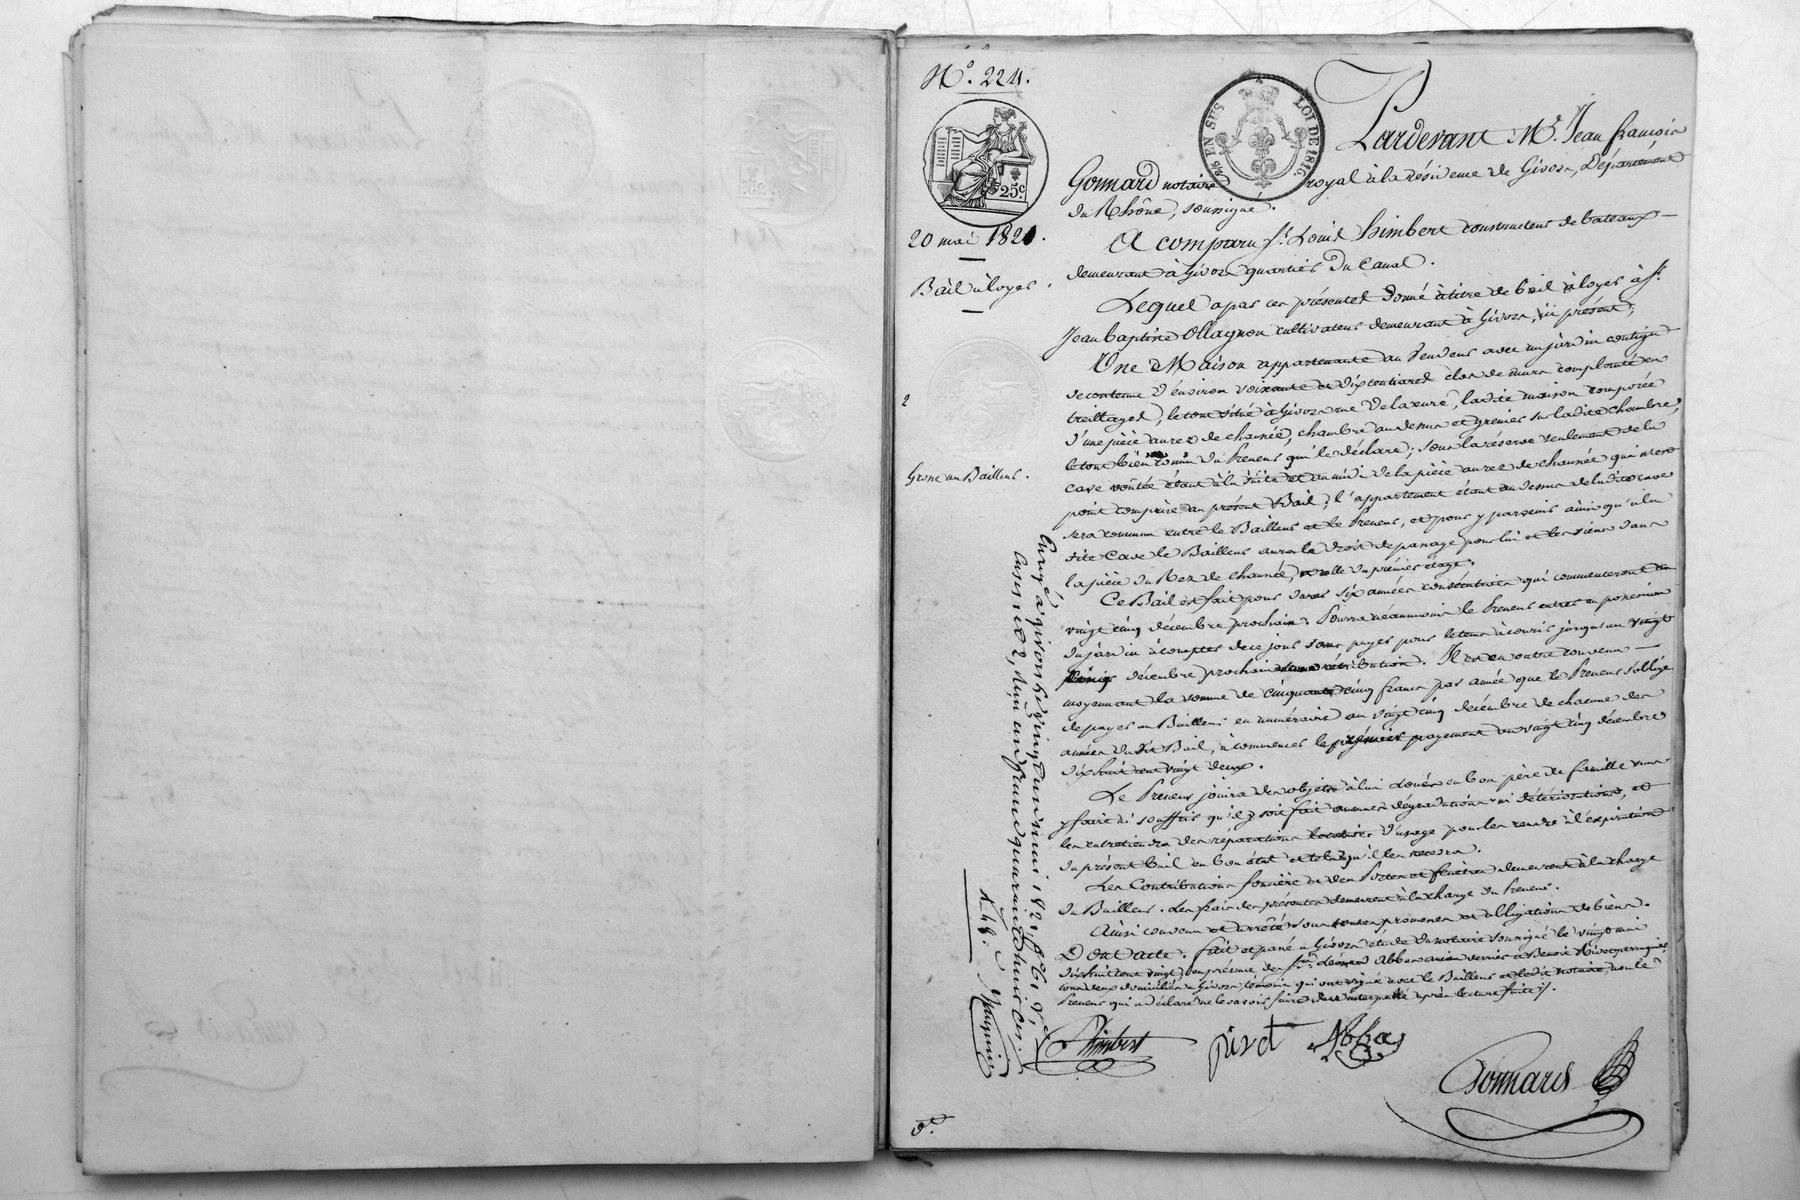 N.° 224.
25c.
EN SUS
LOI DE 1816
20 mai 1821.
Bail à loyer.
2
Grosse au Bailleur.
Pardevant Me. Jean françois
Gonnard notaire royal à la résidence de Givors, Département
du Rhône, soussigné.
A comparu sr. Louis himbert constructeur de bateaux
demeurant à Givors quartier du Canal.
Lequel a par ces présentes donné à titre de bail à loyer à sr.
Jean baptiste Ollagnon cultivateur demeurant à Givors, ici présent,
Une Maison appartenante au avec un jardin contigu
de contenue d'environ soixante et dix centiares clos de murs complanté en
treillages, le tout situé à Givors rue , ladite maison composée
d'une pièce au rez de chaussée, chambre au dessus et grenier sur ladite chambre,
le tout bien connu du Preneur qui le déclare; sous la réserve seulement de la
cave voûtée étant à la suite et au midi de la pièce au rez de chaussée qui n'est
point comprise au présent Bail; l'appartement étant au dessus de ladite cave
sera commun entre le Bailleur et le Preneur, et pour y parvenir ainsi qu'à la
dite Cave le Bailleur aura le droit de passage pour lui et les siens dans
la pièce du Rez de chaussée, et celle du premier étage.
Ce Bail est fait pour six années consécutives qui commenceront au
vingt cinq décembre prochain. Pourra néanmoins le Preneur entrer en possession
du jardin à compter de ce jour sans payer pour le tems à courir jusqu'au vingt
décembre prochain aucune rétribution. Il est en outre convenu
moyennant la somme de cinquante cinq francs par année que le Preneur s'oblige
de payer au Bailleur en numéraire au vingt cinq décembre de chacune des
années dudit Bail, à commencer le premier payement au vingt cinq décembre
dix huit cent vingt deux.
Le Preneur jouira des objets à lui loués en bon père de famille sans
y faire ni souffrir qu'il y soit fait aucunes dégradations ni détériorations, et
les entretiendra des réparations locatives d'usage pour les rendre à l'expiration
du présent bail en bon état et tels qu'il les recevra.
Les Contributions foncière et des Portes et fenêtres demeurent à la charge
du Bailleur. Les frais des présentes demeurent à la charge du Preneur.
Ainsi convenu et arrêté sous toutes promesses et obligations de biens.
Dont acte. fait et passé à Givors, étude du notaire soussigné le vingt mai
dix huit cent vingt, en présence de srs. Abba ancien verrier et Benoit Rivet perruquier
tous deux domiciliés à Givors, témoins qui ont signé avec le Bailleur et ledit notaire, non le
Preneur qui a déclaré ne le savoir faire de ce interpellé après lecture faite ./.
himbert
rivet
Abba
Gonnard
Enregé à givors le vingt un mai 1821, f° 61, V°,
Case 1 et 2, reçu un franc quarante huit ces.
1.48.